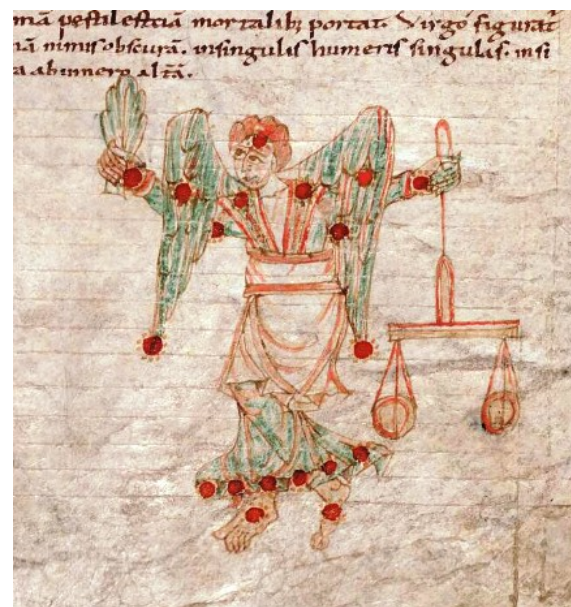 mā pestilestciā mortalib; portat. Virgo figurat̄
nā nimis obscurā. insingulis humeris singulas. insi
a abumero altā.